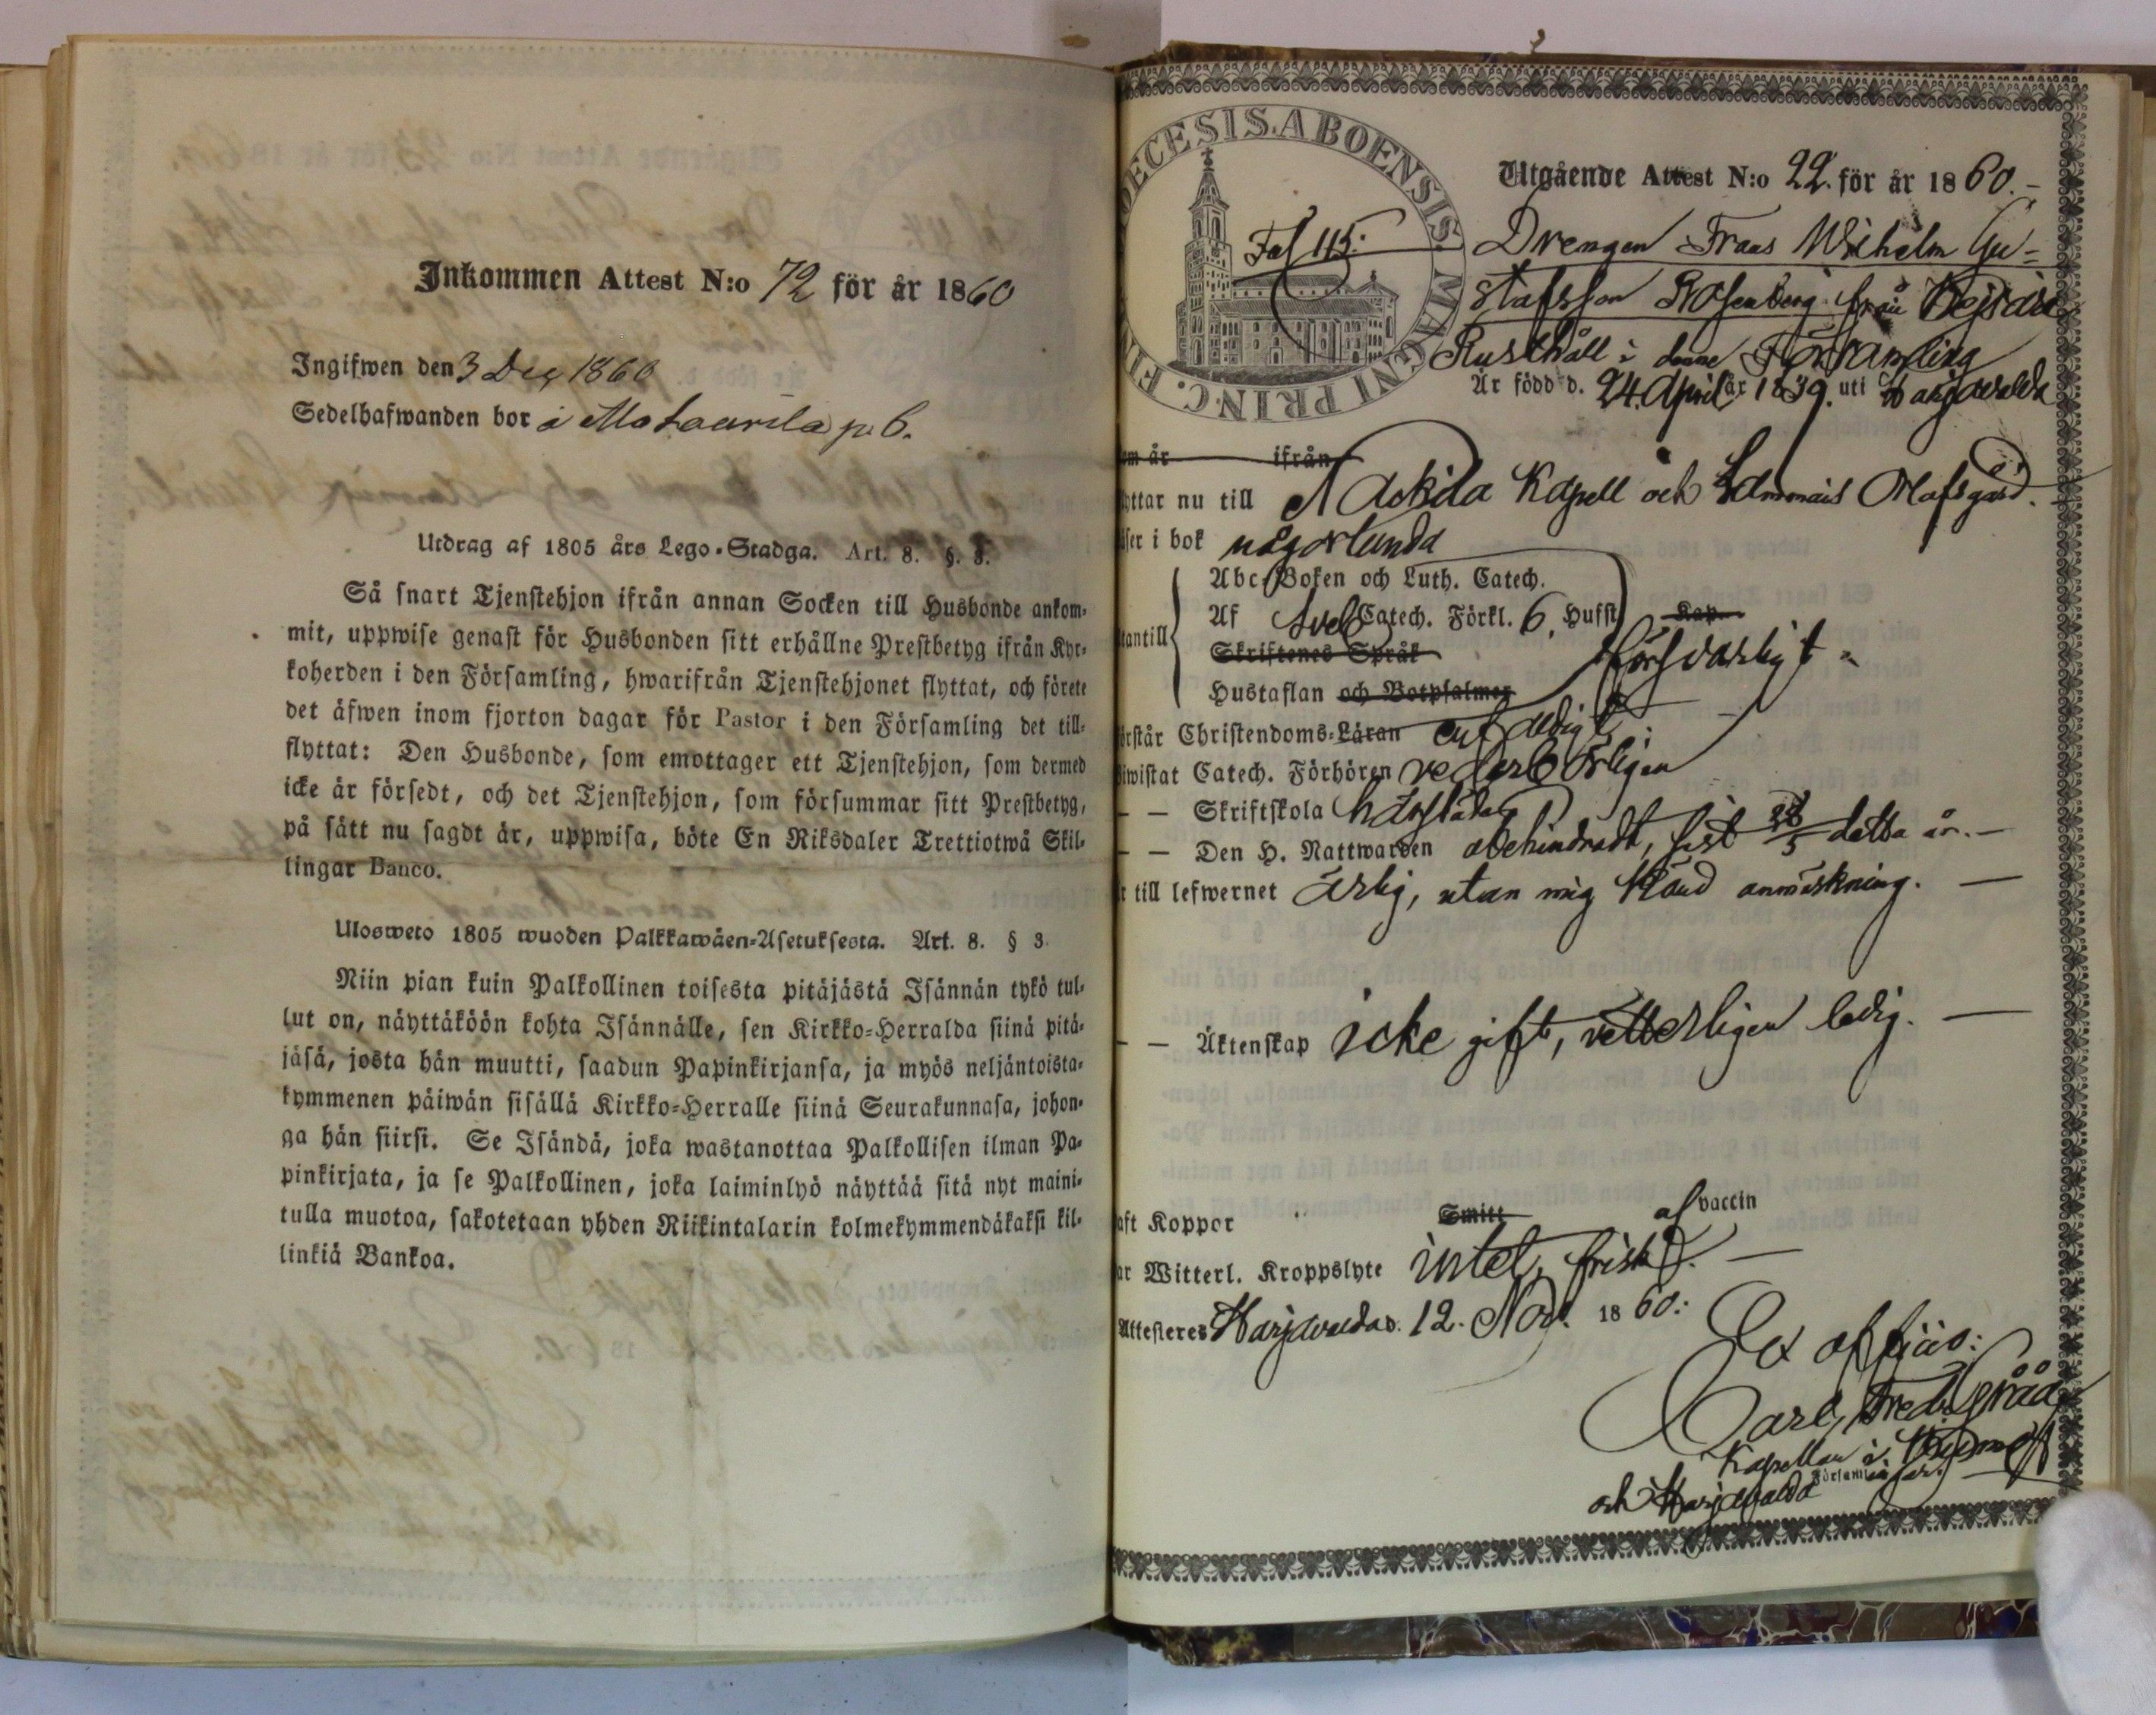 Inkommen Attest N:o 72 för år 1860
Ingifwen den 3 Dec 1860
Sedelhafwanden bor å p. 6.
Utdrag af 1805 års Lego-Stadga. Art. 8. §. 3.
Så snart Tjenstehjon ifrån annan Socken till Husbonde ankom-
mit, uppwise genast för Husbonden sitt erhållne Prestbetyg ifrån Kyr-
koherden i den Församling, hwarifrån Tjenstehjonet flyttat, och förete
det äfwen inom fjorton dagar för Pastor i den Församling det till-
flyttat: Den Husbonde, som emottager ett Tjenstehjon, som dermed
icke är försedt, och det Tjenstehjon, som försummar sitt Prestbetyg,
på sätt nu sagdt är, uppwisa, böte En Riksdaler Trettiotwå Skil-
lingar Banco.
Ulosweto 1805 wuoden Palkkawäen-Asetuksesta. Art. 8. § 3.
Niin pian kuin Palkollinen toisesta pitäjästä Isännän tykö tul-
lut on, näyttäköön kohta Isännälle, sen Kirkko-Herralda siinä pitä-
jäsä, josta hän muutti, saadun Papinkirjansa, ja myös neljäntoista-
kymmenen päiwän sisällä Kirkko-Herralle siinä Seurakunnasa, johon-
ga hän siirsi. Se Isändä, joka wastanottaa Palkollisen ilman Pa-
pinkirjata, ja se Palkollinen, joka laiminlyö näyttää sitä nyt maini-
tulla muotoa, sakotetaan yhden Riikintalarin kolmekymmendäkaksi kil-
linkiä Bankoa.
OECESIS. ABOENSIS. MAGNI PRINC. FI
Fol 115.
Utgående Attest N:o 22. för år 1860.
Drengen Frans Wilhelm Gu-
stafsson Rosenberg från
Rusthåll i denne Församling
Är född d. 24. April år 1839. uti Harjavalda
om år ifrån
yttar nu till Nackila Kapell och Lammais Olofsgård.
äser i bok någorlunda
Abc-Boken och Luth. Catech.
Af Sveb Catech. Förkl. 6, Hufst Kap.
utantill
Skriftenes Språk försvarligt
Hustaflan och Botpsalmer
örstår Christendoms-Läran enfaldigt
iwistat Catech. Förhören vederbörligen
– – Skriftskola härstädes
– – Den H. Nattwarden obehindradt, sist detta år.
r till lefwernet ärlig, utan mig känd anmärkning.
– – Äktenskap icke gift, vetterligen ledig.
aft Koppor Smitt af vaccin
ar Witterl. Kroppslyte intet, frisk.
Attesteres Harjavalda d. 12. Nov. 1860.
Ex officio:
Carl Fredr
Kapellan i
och Harjavalda Församlingar.